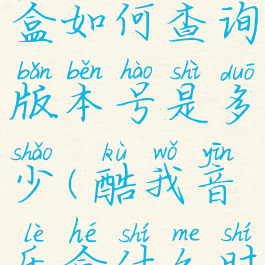 盒如何查询
bǎn běn hào shì duō
版本号是多
shǎo kù wǒ yīn
少(酷我音
lè hé shí me shí
乐盒什么时